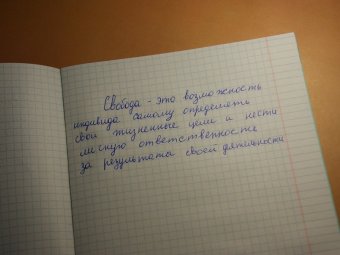 Свобода - это возможность
индивида самому определять
свои жизненные цели и нести
личную ответственность
за результаты своей деятельности